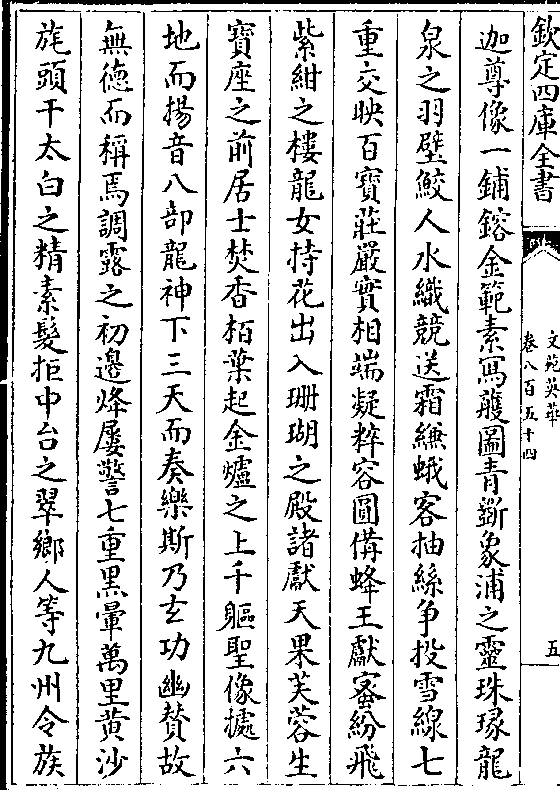 欽定四庫全書
文苑英華
卷八百五十四
五
迦尊像一鋪鎔金範素寫䕶圖青斵象浦之靈珠琢龍
泉之羽壁鮫人水織競送霜縑蛾客抽絲争投雪線七
重交映百寶莊嚴實相端凝粹容圓備蜂王獻蜜紛飛
紫紺之樓龍女持花出入珊瑚之殿諸獻天果芙蓉生
寶座之前居士焚香栢葉起金爐之上千軀聖像攄六
地而揚音八部龍神下三天而奏樂斯乃玄功幽賛故
無德而稱焉調露之初邉烽屢警七重黒暈萬里黄沙
旄頭干太白之精素髮拒中台之翠鄉人等九州令族